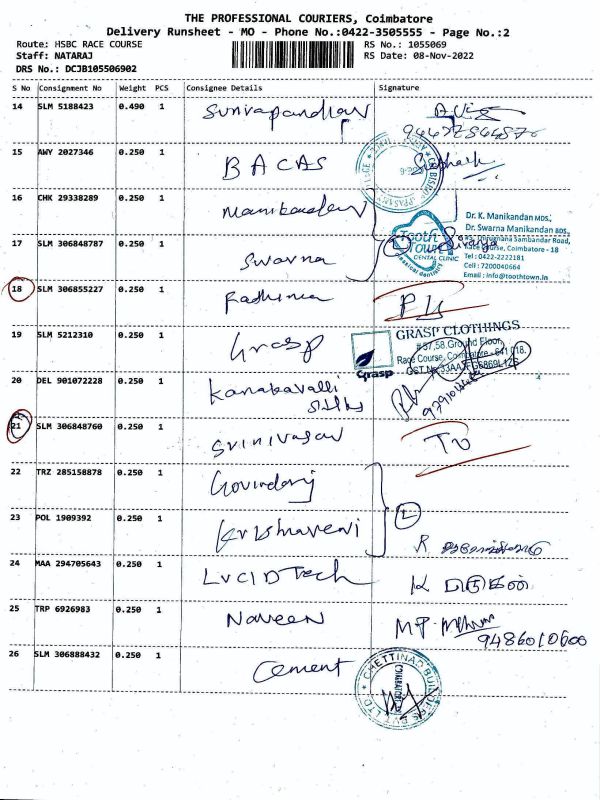 THE PROFESSIONAL COURIERS, Coimbatore
Delivery Runsheet - MO - Phone No.:0422-3505555 - Page No.:2
Route: HSBC RACE COURSE
RS No.: 1055069
Staff: NATARAJ
RS Date: 08-Nov-2022
DRS No.: DCJB105506902
S No Consignment No Weight PCS Consignee Details Signature
14 SLM 5188423 0.490 1
15 AWY 2027346 0.250 1 BACAS
16 CHK 29338289 0.250 1 Manikandan
Dr. K. Manikandan MDS.,
Dr. Swarna Manikandan BDS.,
17 SLM 306848787 0.250 1 Swarna
Tooth Town
DENTAL CLINIC
Sambandar Road,
Race Course, Coimbatore - 18
Tel : 0422-2222181
Cell : 7200040664
Email : info@toothtown.in
18 SLM 306855227 0.250 1 Radhika
19 SLM 5212310 0.250 1 Grasp
Grasp
GRASP CLOTHINGS
#57,58, Ground Floor,
Race Course, Coimbatore - 641 018.
20 DEL 901072228 0.250 1 Kanakavalli
21 SLM 306848760 0.250 1 Srinivasan
22 TRZ 285158878 0.250 1 Govindaraj
23 POL 1909392 0.250 1 Krishnaveni
24 MAA 294705643 0.250 1 LUCID Tech
25 TRP 6926983 0.250 1 Naveen
9486010600
26 SLM 306888432 0.250 1 Cement
CHETTINAD BUILDERS PVT LTD
COIMBATORE